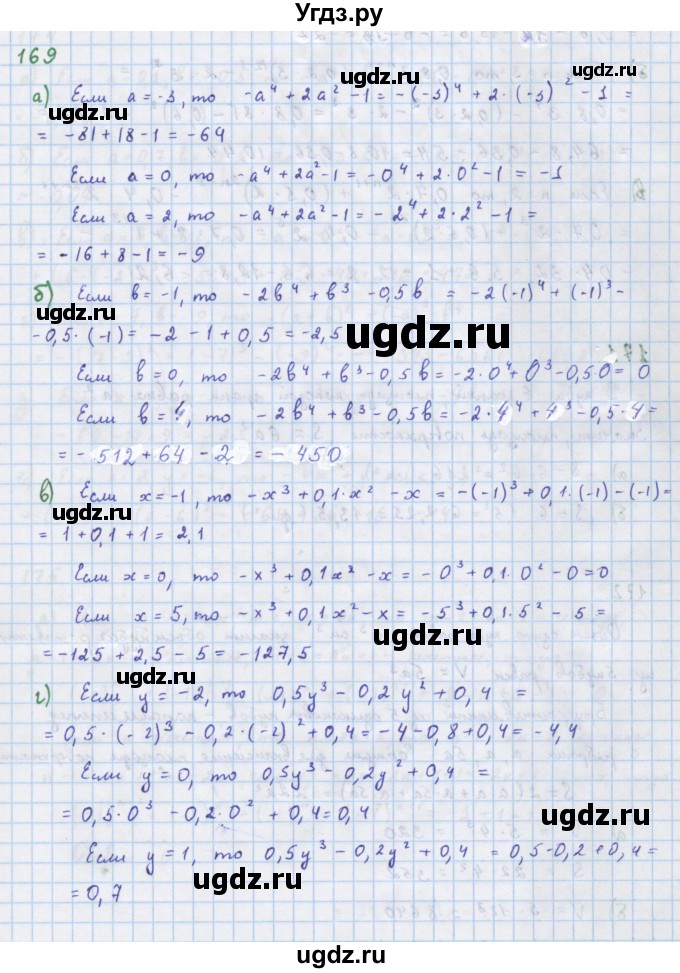 Угдз.ру
169
а) Если a = -3, то -a⁴ + 2a² - 1 = -(-3)⁴ + 2·(-3)² - 1 =
= -81 + 18 - 1 = -64
Если a = 0, то -a⁴ + 2a² - 1 = -0⁴ + 2·0² - 1 = -1
Если a = 2, то -a⁴ + 2a² - 1 = -2⁴ + 2·2² - 1 =
= -16 + 8 - 1 = -9
б) Если b = -1, то -2b⁴ + b³ - 0,5b = -2(-1)⁴ + (-1)³ -
-0,5·(-1) = -2 - 1 + 0,5 = -2,5
Если b = 0, то -2b⁴ + b³ - 0,5b = -2·0⁴ + 0³ - 0,5·0 = 0
Если b = 4, то -2b⁴ + b³ - 0,5b = -2·4⁴ + 4³ - 0,5·4 =
= -512 + 64 - 2 = -450
в) Если x = -1, то -x³ + 0,1·x² - x = -(-1)³ + 0,1·(-1) - (-1) =
= 1 + 0,1 + 1 = 2,1
Если x = 0, то -x³ + 0,1x² - x = -0³ + 0,1·0² - 0 = 0
Если x = 5, то -x³ + 0,1x² - x = -5³ + 0,1·5² - 5 =
= -125 + 2,5 - 5 = -127,5
г) Если y = -2, то 0,5y³ - 0,2y² + 0,4 =
= 0,5·(-2)³ - 0,2·(-2)² + 0,4 = -4 - 0,8 + 0,4 = -4,4
Если y = 0, то 0,5y³ - 0,2y² + 0,4 =
= 0,5·0³ - 0,2·0² + 0,4 = 0,4
Если y = 1, то 0,5y³ - 0,2y² + 0,4 = 0,5 - 0,2 + 0,4 =
= 0,7
ugdz.ru
ugdz.ru
ugdz.ru
ugdz.ru
ugdz.ru
ugdz.ru
ugdz.ru
ugdz.ru
ugdz.ru
ugdz.ru
ugdz.ru